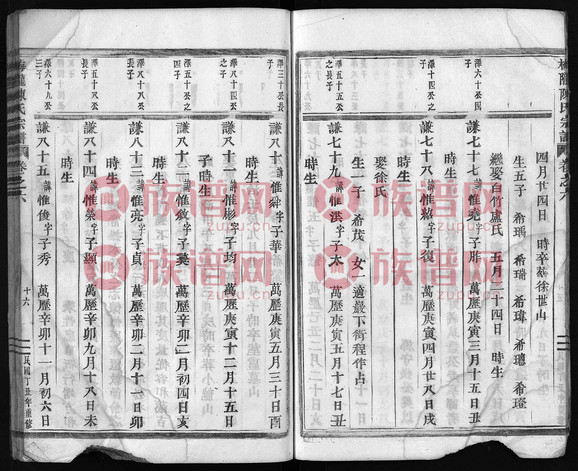 梅隴陳氏宗譜 卷之六
四月廿四日 時卒葬徐世山
生五子 希瑀 希瑞 希瑋 希璁 希璒
繼娶白竹盧氏 五月二十四日 時生
澤六十子
謙七十七諱惟堯字子胙 萬歷庚寅三月十五日丑時生
澤十四公之子
謙七十八諱惟紹字子復 萬歷庚寅四月廿八日戌時生
娶徐氏
生一子 希茂 女一適嚴下衛程作占
澤八十四公長子
謙七十九諱惟洪字子太 萬歷庚寅五月十七日丑時生
澤三十公長子
謙八十諱惟舜字子華 萬歷庚寅五月三十日酉
澤八十四公之子
謙八十一諱惟彬字子均 萬歷庚寅十二月十五日子時生
澤五十公四子
謙八十二諱惟敘字子羙 萬歷辛卯二月初四日亥時生
澤八十公次子
謙八十三諱惟亮字子貞 萬歷辛卯二月十一日卯時生
澤五十公長子
謙八十四諱惟榮字子顯 萬歷辛卯九月十八日未時生
澤六十九公三子
謙八十五諱惟俊字子秀 萬歷辛卯十一月初六日時生
梅隴陳氏宗譜 卷之六
十六
民國丁丑年重修
族谱网
www.zupu.cn